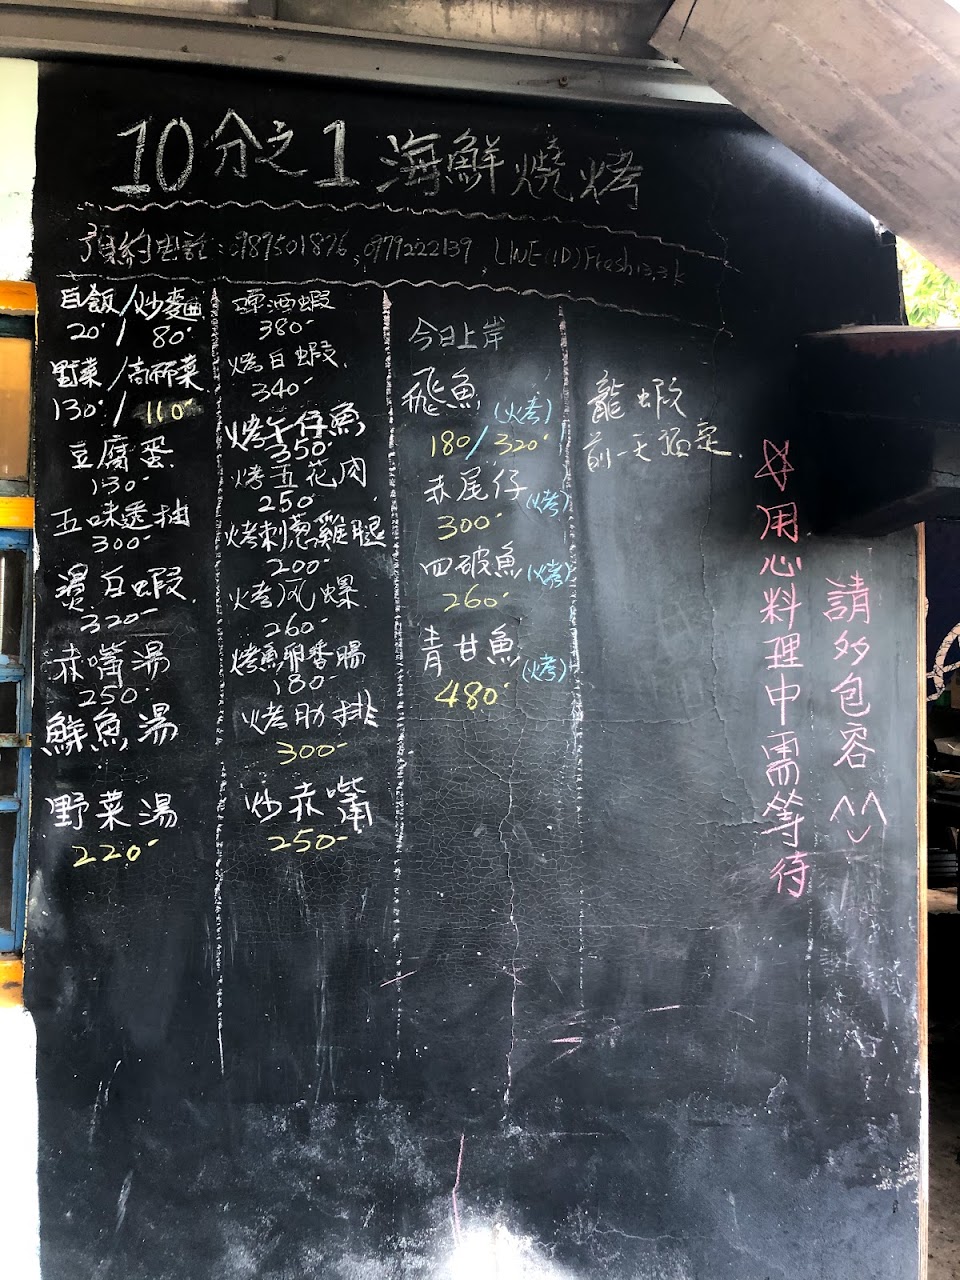 10分之1海鮮燒烤
預約電話:0989501876,0979222139 LINE(ID)Fresh
白飯/炒麵
20-/80-
野菜/高麗菜
130-/110-
豆腐蛋
130-
五味透抽
300-
燙白蝦
320-
赤嘴湯
250-
鮮魚湯
野菜湯
220-
啤酒蝦
380-
烤白蝦
340-
烤午仔魚
350-
烤五花肉
250-
烤刺蔥雞腿
200-
烤风螺
260-
烤魚卵香腸
180-
烤肋排
300-
炒赤嘴
250-
今日上岸
飛魚(烤)
180/320-
赤尾仔(烤)
300-
四破魚(烤)
260-
青甘魚(烤)
480-
龍蝦
前一天預定
☆用心料理中需等待
請多包容^^